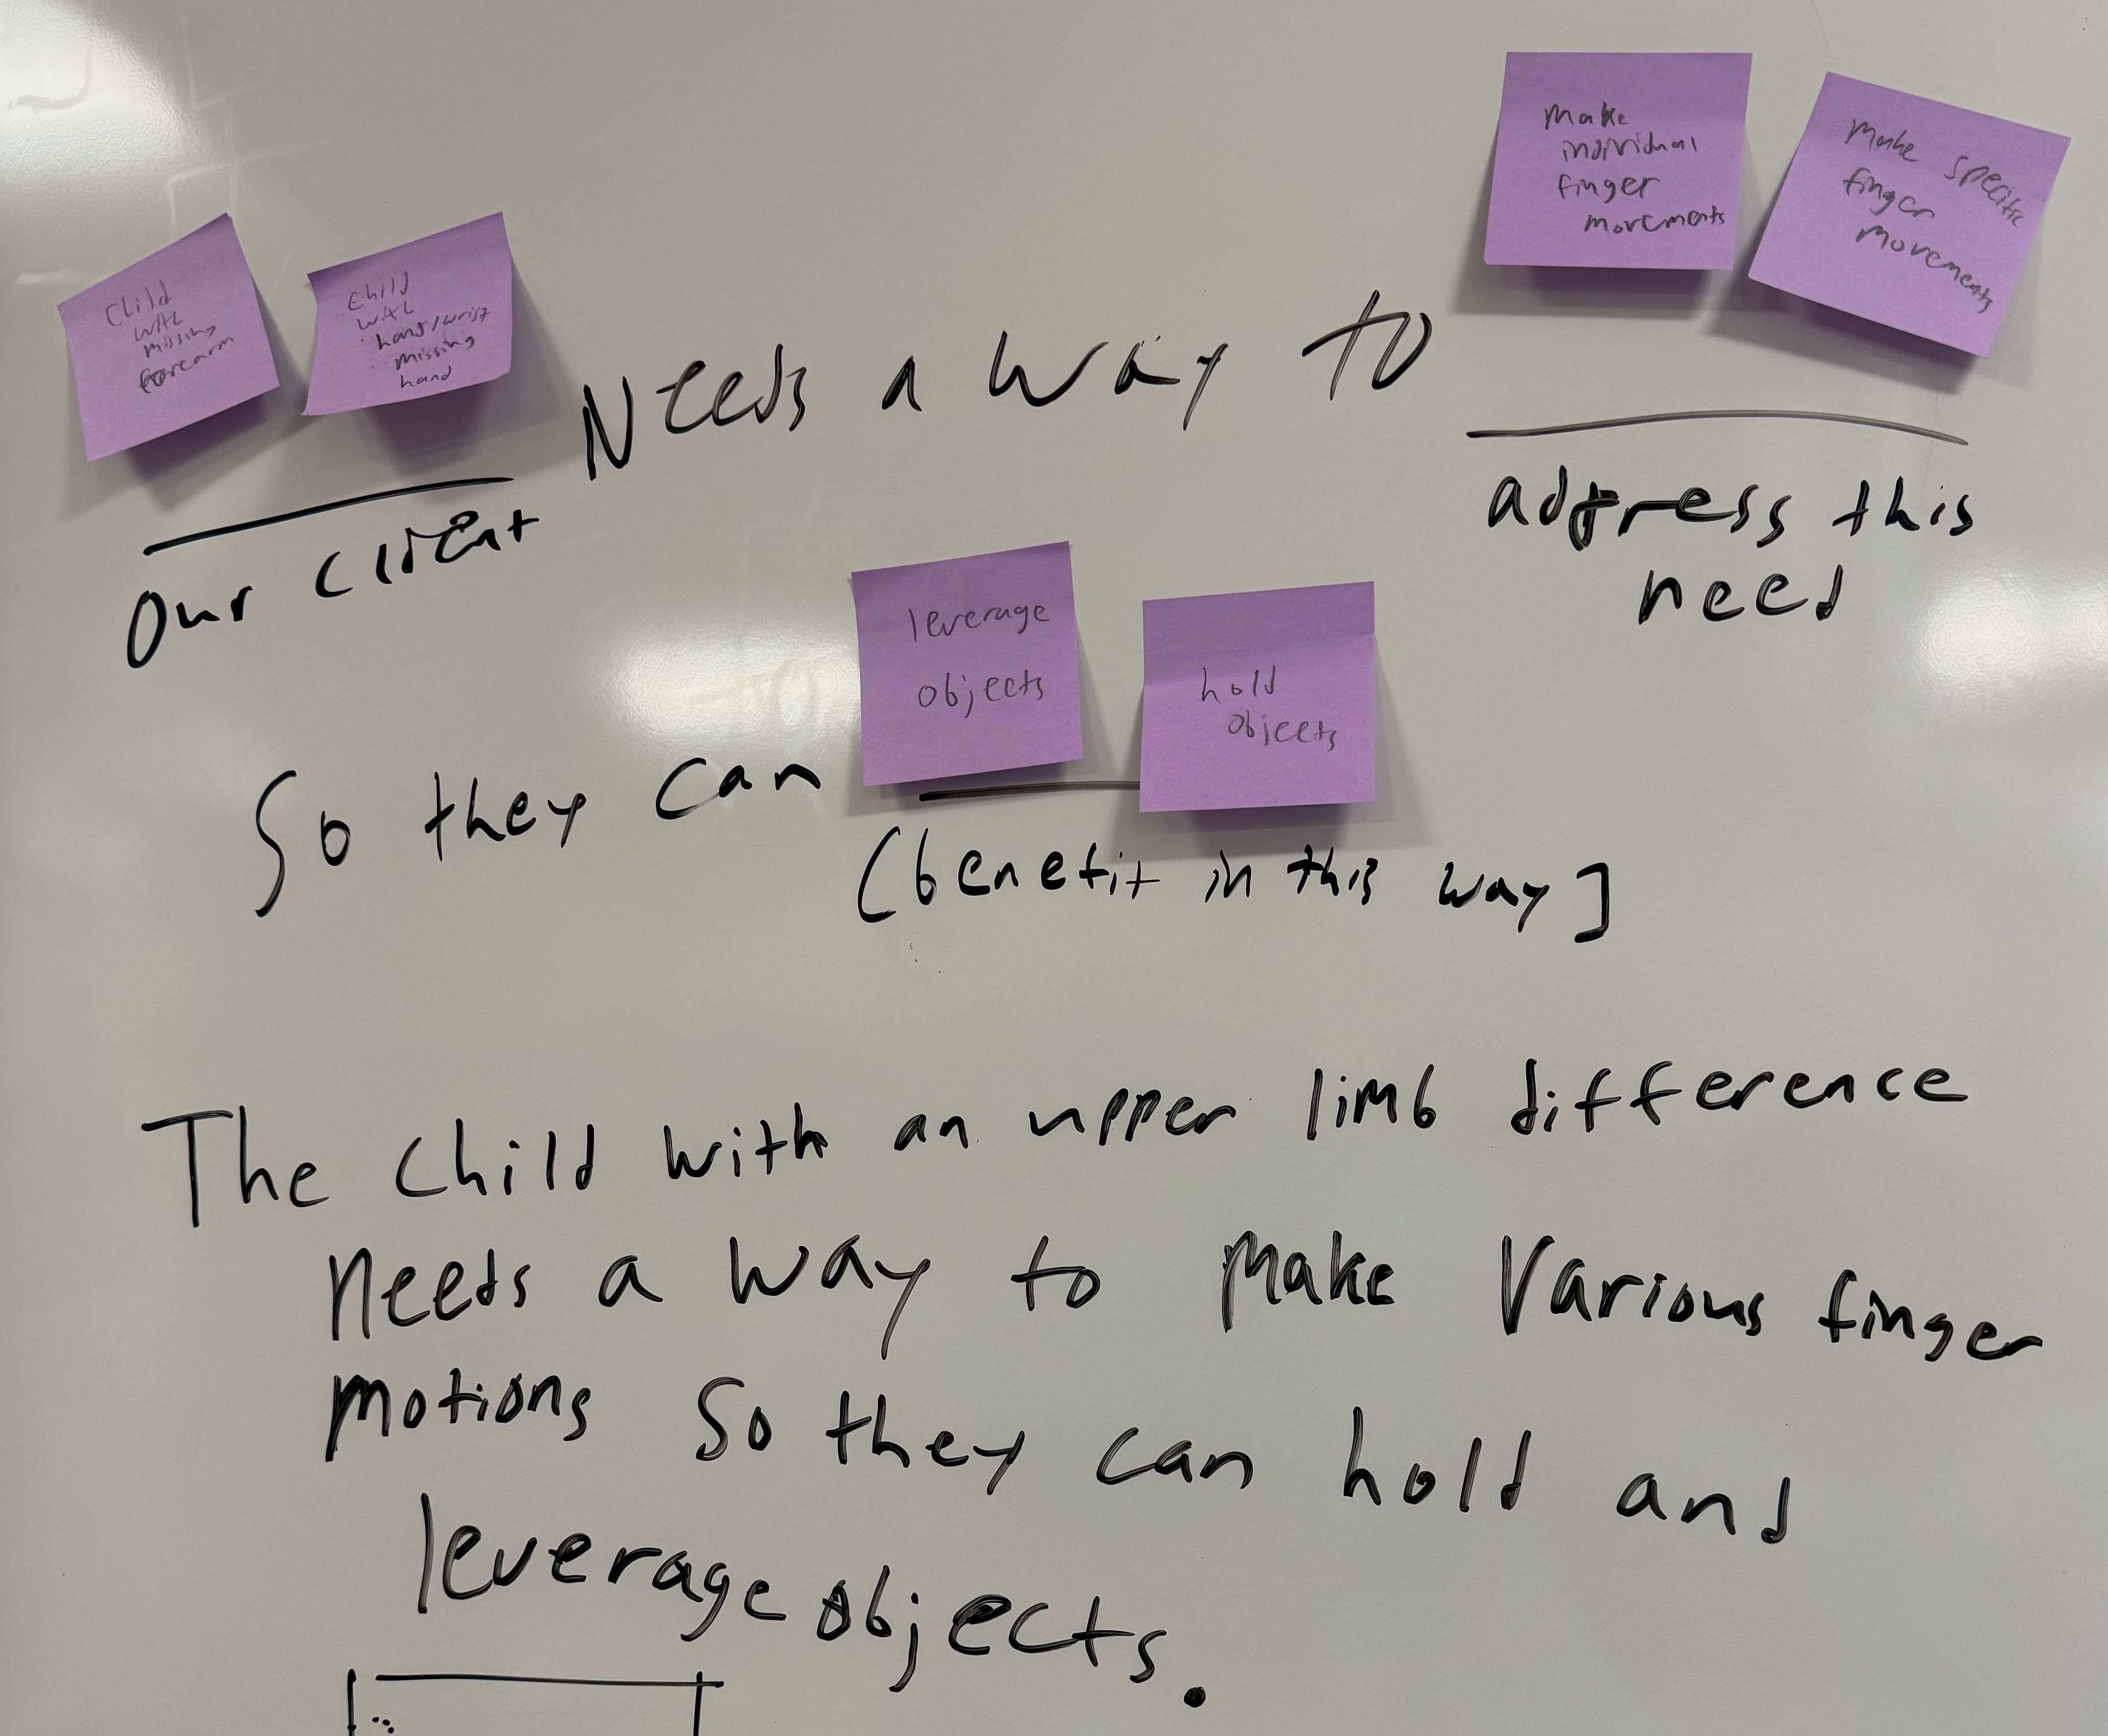 Child
with
missing
forearm
Child
with
hand/wrist
missing
hand
Needs a way to
make
individual
finger
movements
make specific
finger
movements
our client
address this
need
So they can
leverage
objects
hold
objects
(benefit in this way]
The child with an upper limb difference
needs a way to make various finger
motions so they can hold and
leverage objects.